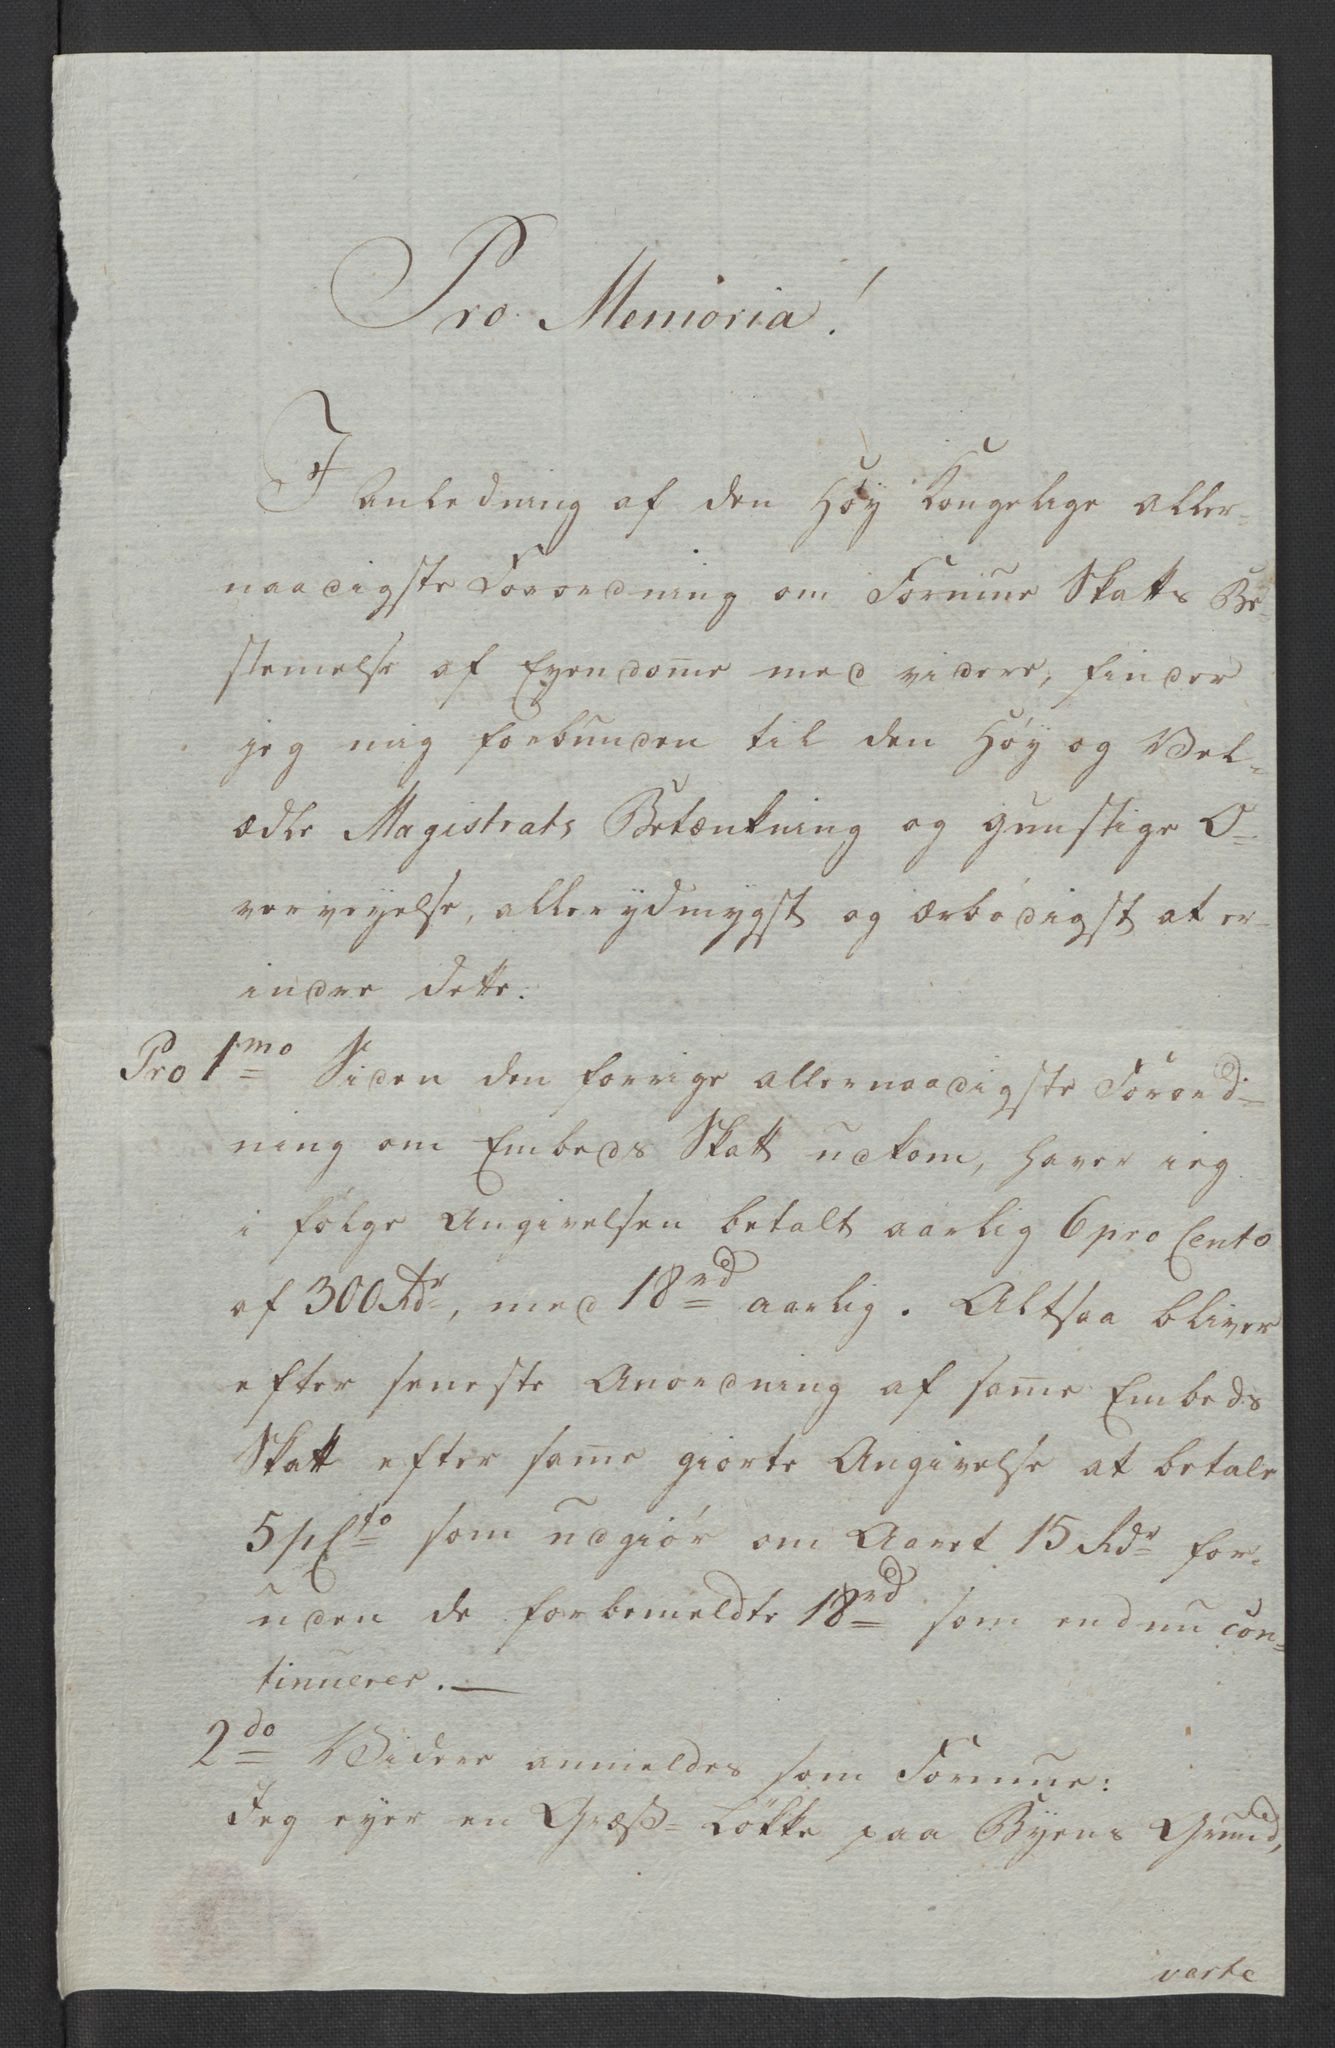 Pro Memoria!
I Anledning af den Høy Kongelige aller-
naadigste Forordning om Formue Skatts Be-
stemelse af Eyendome med videre, finder
jeg mig forbunden til den Høy og Vel-
ædle Magistrats Betænkning og gunstige O-
verveyelse, allerydmygst og ærbødigst at er-
indre dette:
Pro 1mo Siden den forrige allernaadigste Forord-
ning om Embeds Skatt udkom, haver ieg
i følge Angivelsen betalt aarlig 6 pro Cento
af 300 Rdr, med 18 rd aarlig. Altsaa bliver
efter seneste Anordning af same Embeds
Skatt efter same giorte Angivelse at betale
5 pCto som udgiør om Aaret 15 Rdr for-
uden de forbemeldte 18 rd som endnu con-
tinuerer. —
2do Videre anmeldes som Formue:
Jeg eyer en Græss- Løkke paa Byens Grund,
verte